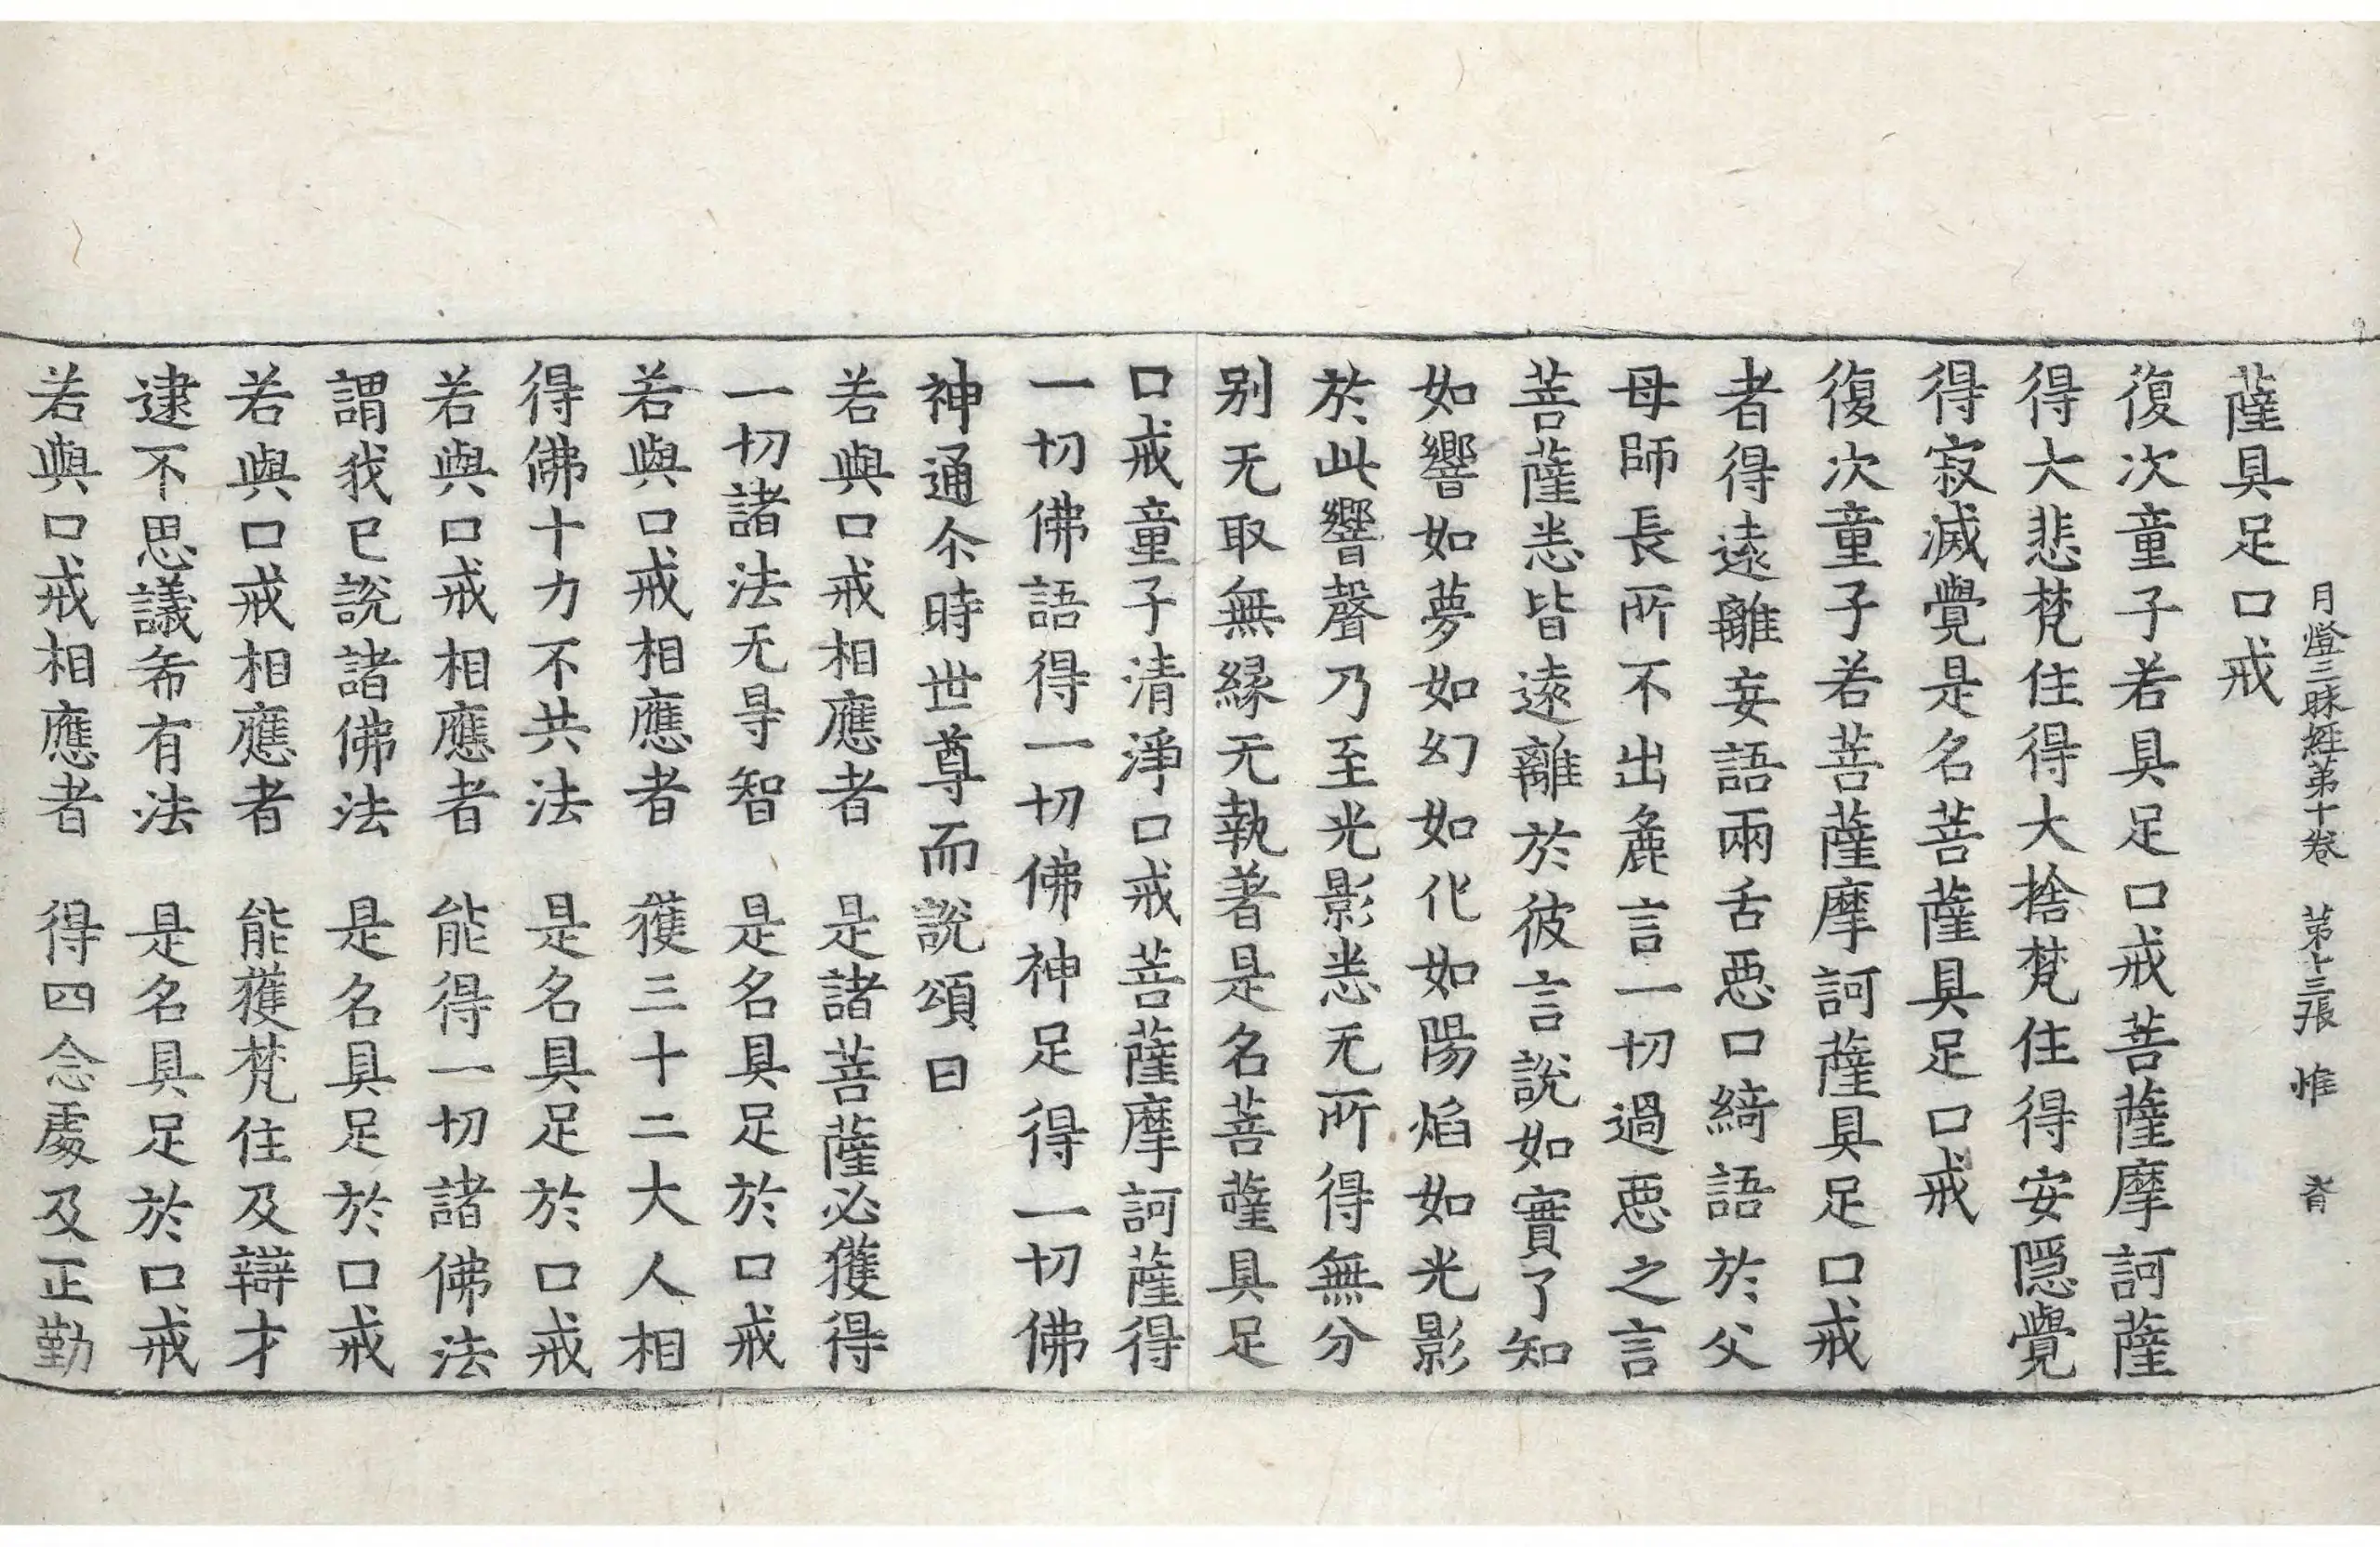 月燈三昧經第十卷 第十三張 惟
薩具足口戒
復次童子若具足口戒菩薩摩訶薩
得大悲梵住得大捨梵住得安隠覺
得寂滅覺是名菩薩具足口戒
復次童子若菩薩摩訶薩具足口戒
者得遠離妄語兩舌惡口綺語於父
母師長所不出麁言一切過惡之言
菩薩悉皆遠離於彼言說如實了知
如響如夢如幻如化如陽焰如光影
於此響聲乃至光影悉无所得無分
別无取無緣无執著是名菩薩具足
口戒童子清淨口戒菩薩摩訶薩得
一切佛語得一切佛神足得一切佛
神通尒時世尊而說頌曰
若與口戒相應者 是諸菩薩必獲得
一切諸法无㝵智 是名具足於口戒
若與口戒相應者 獲三十二大人相
得佛十力不共法 是名具足於口戒
若與口戒相應者 能得一切諸佛法
謂我已說諸佛法 是名具足於口戒
若與口戒相應者 能獲梵住及辯才
逮不思議希有法 是名具足於口戒
若與口戒相應者 得四念處及正勤